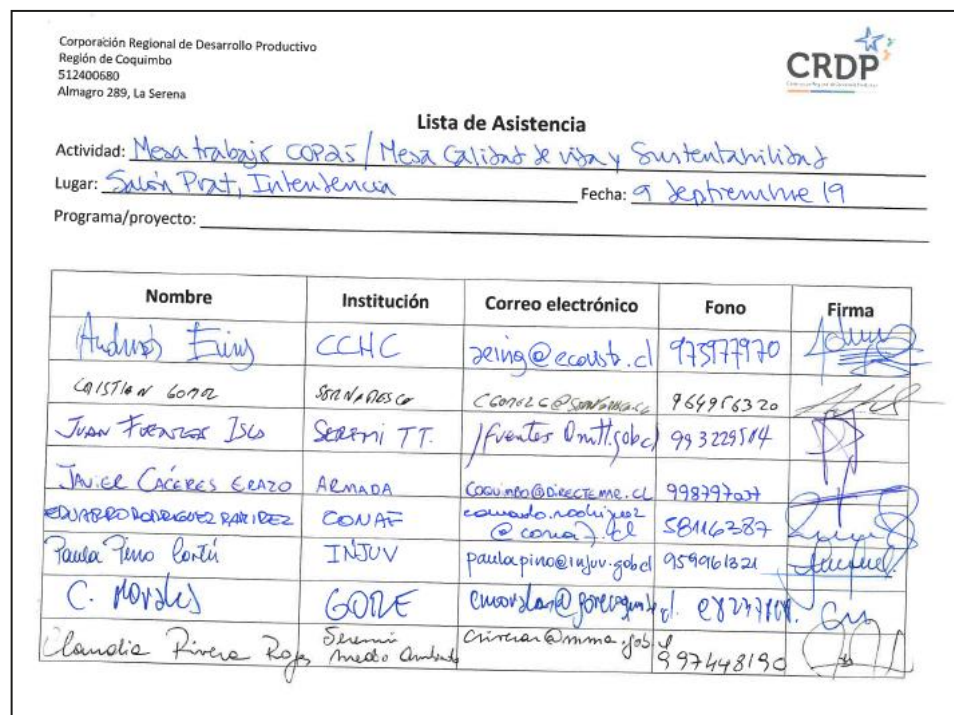 Corporación Regional de Desarrollo Productivo
Región de Coquimbo
512400680
Almagro 289, La Serena
CRDP
Lista de Asistencia
Actividad: Mesa trabajo COP25 / Mesa Calidad de vida y Sustentabilidad
Lugar: Salón Prat, Intendencia Fecha: 9 Septiembre 19
Programa/proyecto:
Nombre Institución Correo electrónico Fono Firma
Andrés CCHC 973977970
CRISTIAN 964956320
JUAN FUENTES ISLA SEREMI TT. jfuentes@mtt.gob.cl 993229504
JAVIER CÁCERES ERAZO ARMADA COQUIMBO@DIRECTEMAR.CL
EDUARDO RODRIGUEZ RAMIREZ CONAF 58116387
Paula Pino Cortú INJUV paulapino@injuv.gob.cl 959961321
C. Morales GORE
Claudia Rivera Rojas Seremi Medio Ambiente 997448190